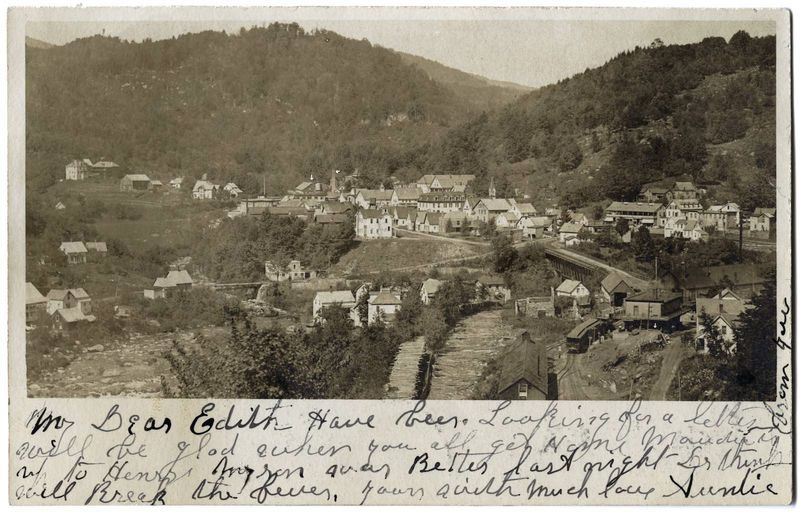 My Dear Edith Have been Looking for a letter
will be glad when you all get Home Maud is
up to Henrys Myron was Better last night Dr think
will Break the fever, yours with much love Auntie